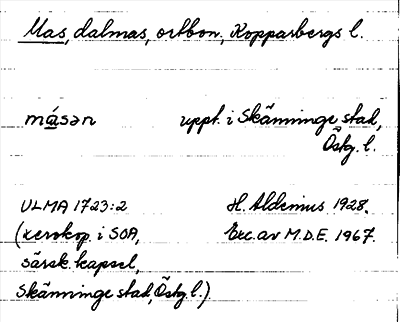 Mas, dalmas, ortbon, Kopparbergs l.
måsən uppt. i Skänninge stad,
Östg. l.
ULMA 1723:2 H. Aldenius 1928.
(xerokop. i SOA, Exc. av M.D.E. 1967.
särsk. kapsel,
Skänninge stad, Östg. l.)